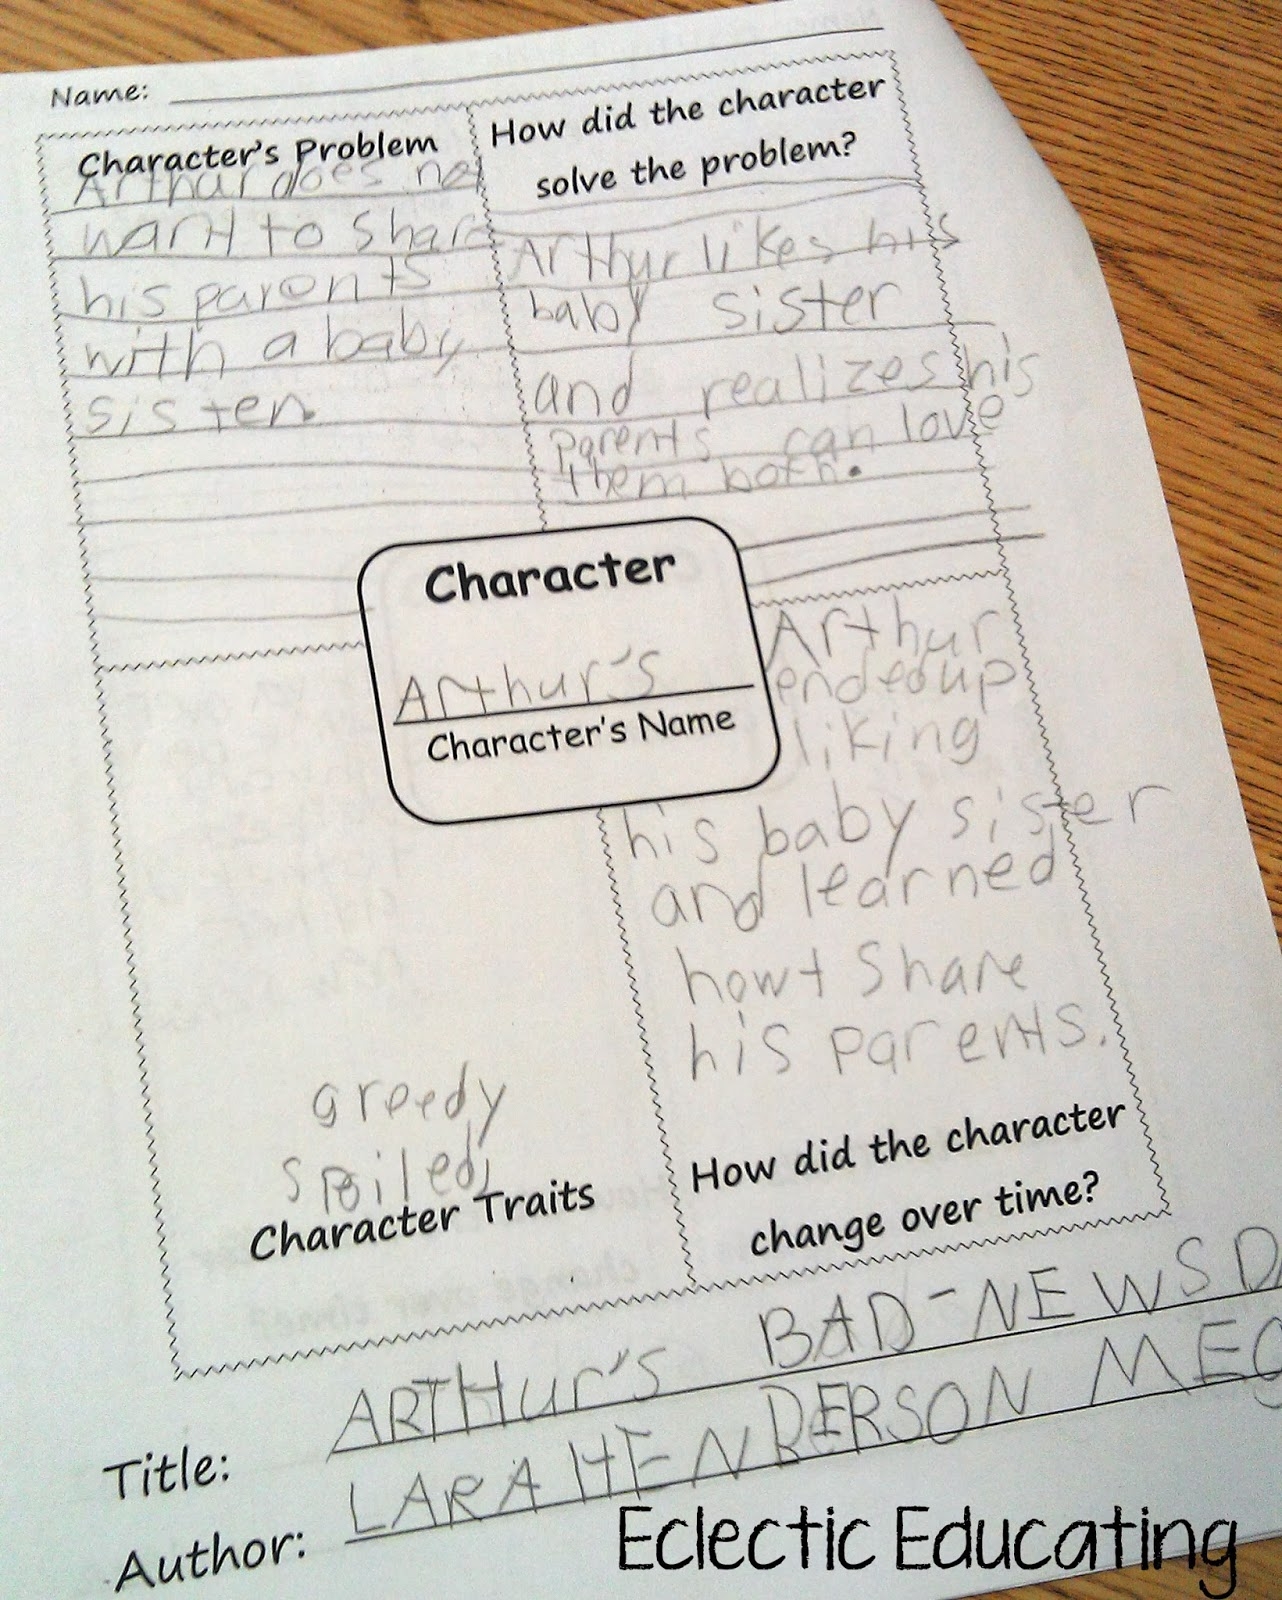 Name:
Character's Problem
Arthur does not
want to share
his parents
with a baby
sister.
How did the character
solve the problem?
Arthur likes his
baby sister
and realizes his
parents can love
them both.
Character
Arthur's
Character's Name
greedy
spoiled
Character Traits
Arthur
endedup
liking
his baby sister
and learned
howt share
his parents.
How did the character
change over time?
Title: ARTHur's BAD-NEWS DA
Author: LARA HENDERSON MEG
Eclectic Educating